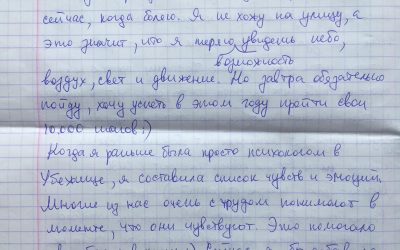 сейчас, когда болею. Я не хожу на улицу, а
это значит, что я теряю увидеть небо,
возможность
воздух, свет и движение. Но завтра обязательно
пойду, хочу успеть в этом году пройти свои
10.000 шагов :)
Когда я раньше была просто психологом в
Убежище, я составила список чувств и эмоций.
Многие из нас очень с трудом понимают в
моменте, что они чувствуют. Это помогало